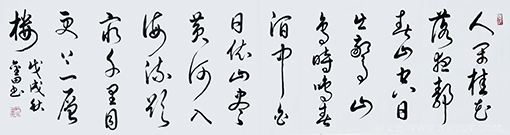 人闲桂花
落夜静
春山空月
出惊山
鸟时鸣春
涧中白
日依山尽
黄河入
海流欲
穷千里目
更上一层
楼
戊戌秋
田书